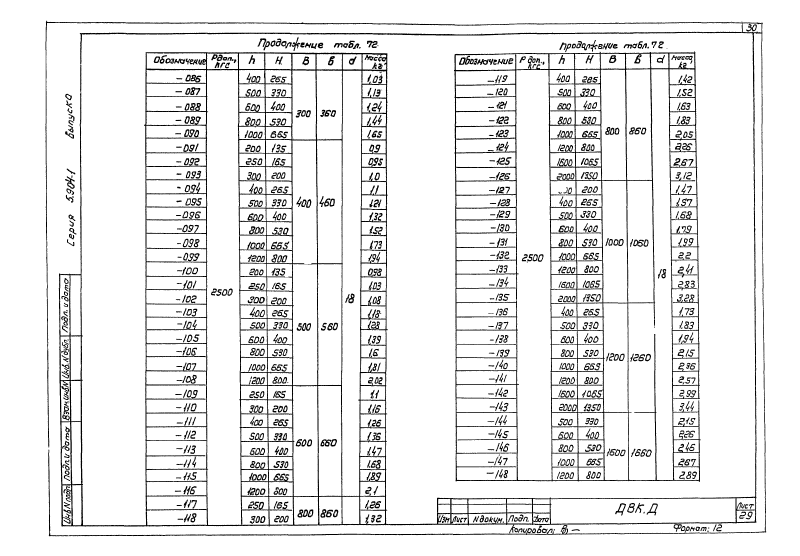 30
Продолжение табл. 72
Обозначение Рдоп., кгс h H B Б d Масса кг
-086 400 265 1,03
-087 500 330 1,13
-088 600 400 1,24
-089 800 530 300 360 1,44
-090 1000 665 1,65
-091 200 135 0,9
-092 250 165 0,95
-093 300 200 1,0
-094 400 265 1,1
-095 500 330 400 460 1,21
-096 600 400 1,32
-097 800 530 1,52
-098 1000 665 1,73
-099 1200 800 1,94
-100 200 135 0,98
-101 250 165 1,03
-102 2500 300 200 18 1,08
-103 400 265 1,18
-104 500 330 500 560 1,28
-105 600 400 1,39
-106 800 530 1,6
-107 1000 665 1,81
-108 1200 800 2,02
-109 250 165 1,1
-110 300 200 1,16
-111 400 265 1,26
-112 500 330 600 660 1,36
-113 600 400 1,47
-114 800 530 1,68
-115 1000 665 1,89
-116 1200 800 2,1
-117 250 165 800 860 1,26
-118 300 200 1,32
Продолжение табл. 72
Обозначение Рдоп., кгс h H B Б d Масса кг
-119 400 265 1,42
-120 500 330 1,52
-121 600 400 1,63
-122 800 530 1,83
-123 1000 665 800 860 2,05
-124 1200 800 2,26
-125 1600 1065 2,67
-126 2000 1350 3,12
-127 200 1,47
-128 400 265 1,57
-129 500 330 1,68
-130 600 400 1,79
-131 800 530 1000 1060 1,99
-132 2500 1000 665 2,2
-133 1200 800 18 2,41
-134 1600 1065 2,83
-135 2000 1350 3,28
-136 400 265 1,73
-137 500 330 1,83
-138 600 400 1,94
-139 800 530 1200 1260 2,15
-140 1000 665 2,36
-141 1200 800 2,57
-142 1600 1065 2,99
-143 2000 1350 3,44
-144 500 330 2,15
-145 600 400 2,26
-146 800 530 1600 1660 2,46
-147 1000 665 2,67
-148 1200 800 2,89
Серия 5.904-1 Выпуск 0
Инв.N подл. Подп. и дата Взам.инв.N Инв.N дубл. Подп. и дата
Изм Лист N докум. Подп. Дата
ДВК.Д
Лист
29
Копировал:
Формат: 12